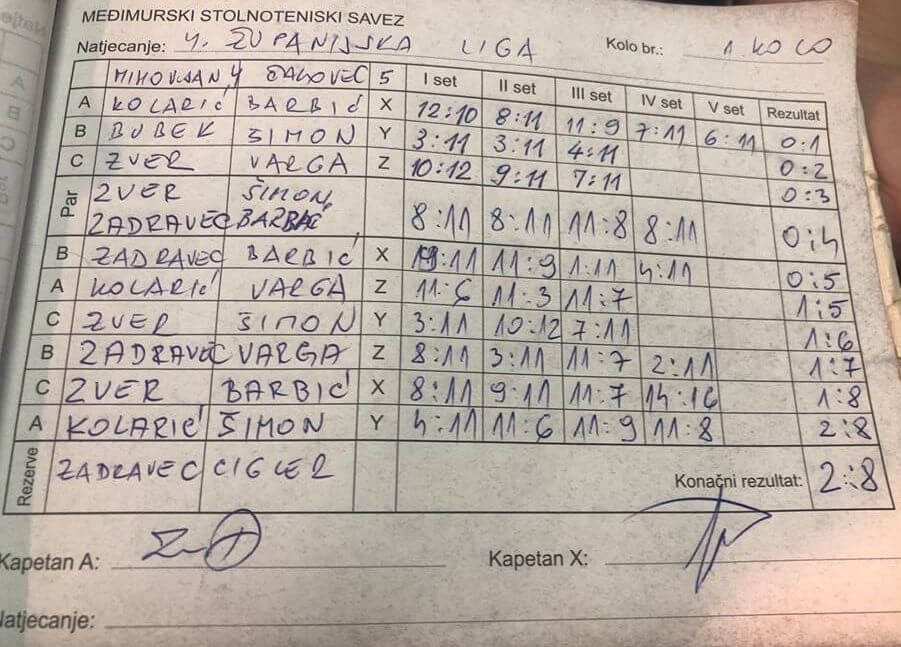 MEĐIMURSKI STOLNOTENISKI SAVEZ
Natjecanje: 4. ŽUPANIJSKA LIGA Kolo br.: 1. KOLO
MIHOVLJAN 4 ŠALOVEC 5 I set II set III set IV set V set Rezultat
A KOLARIĆ BARBIĆ X 12:10 8:11 11:9 7:11 6:11 0:1
B BUBEK ŠIMON Y 3:11 3:11 4:11 0:2
C ZVER VARGA Z 10:12 9:11 7:11 0:3
Par ZVER ŠIMON,
ZADRAVEC BARBIĆ 8:11 8:11 11:8 8:11 0:4
B ZADRAVEC BARBIĆ X 11:9 1:11 4:11 0:5
A KOLARIĆ VARGA Z 11:6 11:3 11:7 1:5
C ZVER ŠIMON Y 3:11 10:12 7:11 1:6
B ZADRAVEC VARGA Z 8:11 3:11 11:7 2:11 1:7
C ZVER BARBIĆ X 8:11 9:11 11:7 14:16 1:8
A KOLARIĆ ŠIMON Y 4:11 11:6 11:9 11:8 2:8
Rezerve ZADRAVEC CIGLER Konačni rezultat: 2:8
Kapetan A: Kapetan X:
Natjecanje: